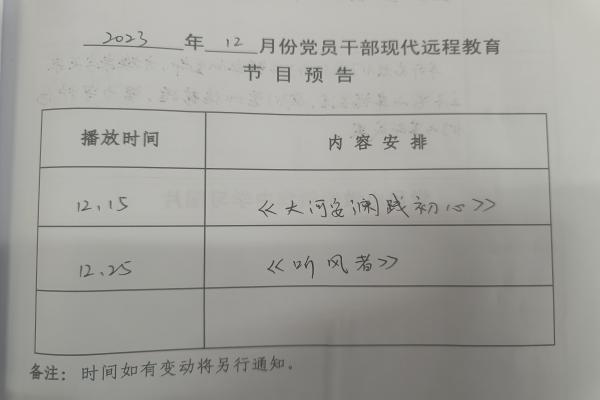 2023 年 12 月份党员干部现代远程教育
节目预告
播放时间 内容安排
12.15 《大河安澜践初心》
12.25 《听风者》
备注：时间如有变动将另行通知。